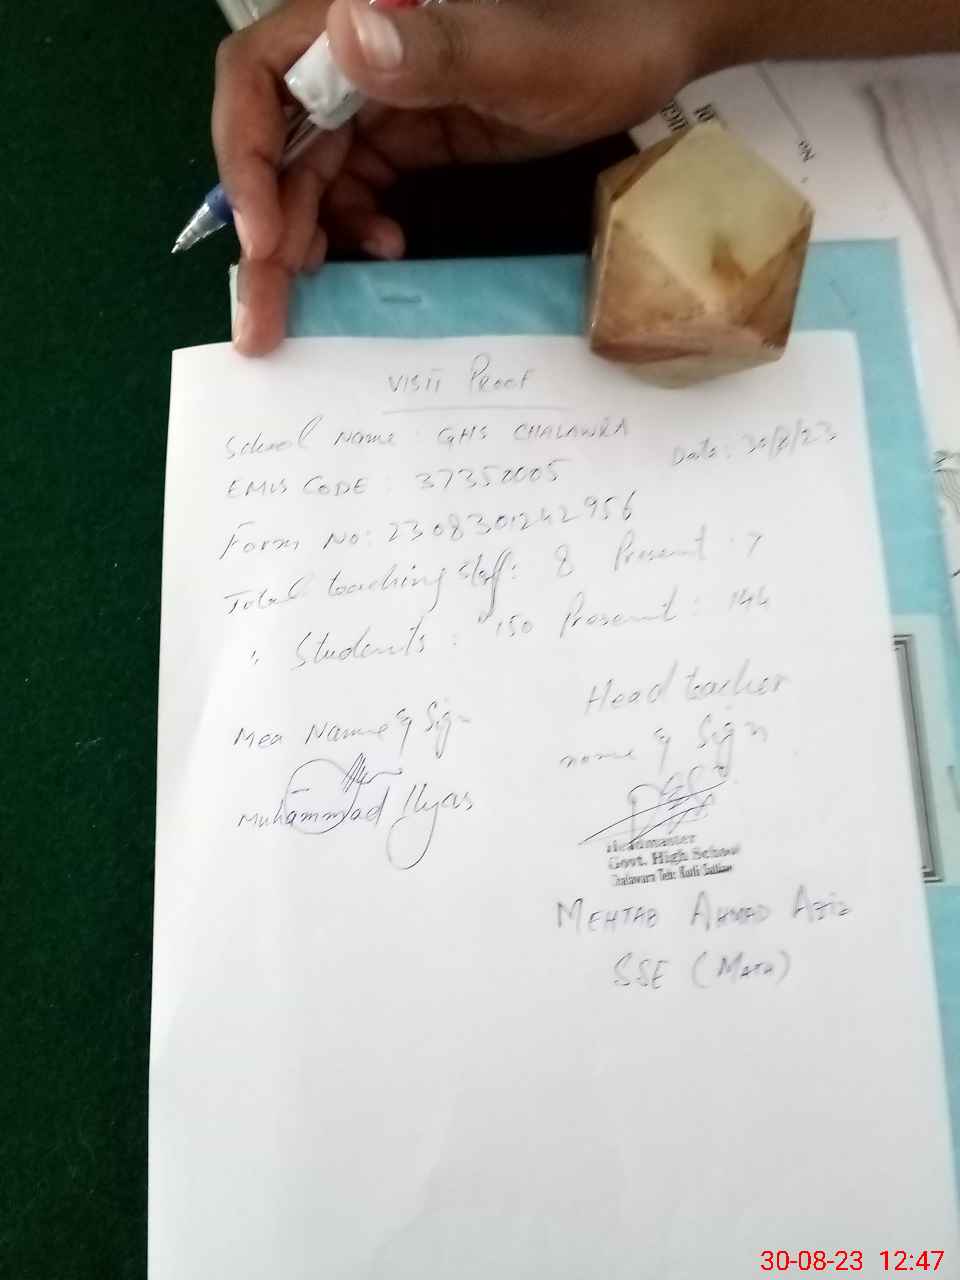 No
VISIT PROOF
School Name: GHS CHALAWRA
Date: 30/8/23
EMIS CODE: 37350005
Form No: 2308301242956
Total teaching Staff: 8 Present: 7
" Students: 150 Present: 144
Mea Name & Sign
Head teacher
name & Sign
Muhammad Ilyas
Headmaster
Govt. High School
Chalawara Teh: Kotli Sattian
MEHTAB AHMAD AZIZ
SSE (MATH)
30-08-23 12:47